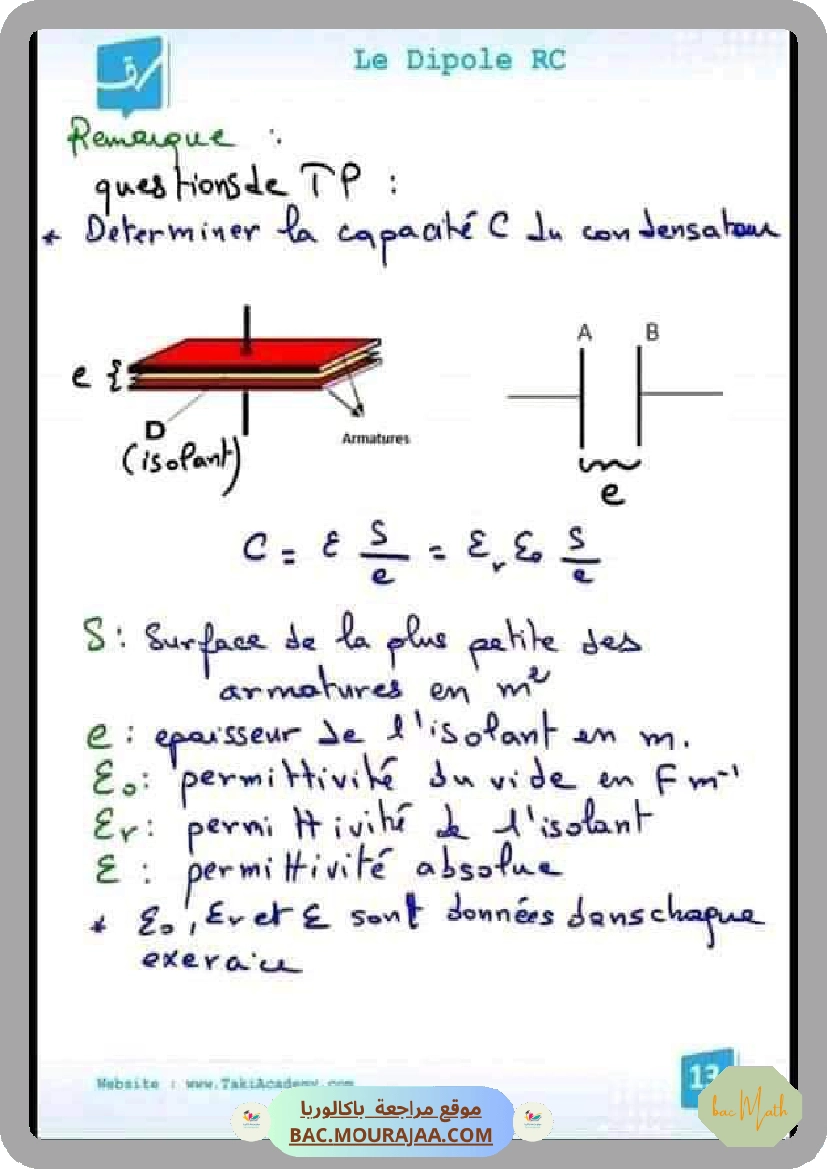 Le Dipole RC
Remarque :
questions de TP :
* Determiner la capacité C du condensateur
A B
e {
D
Armatures
(isolant)
e
C = ε S/e = εr ε0 S/e
S : Surface de la plus petite des
armatures en m²
e : epaisseur de l'isolant en m.
ε0 : permittivité du vide en F m⁻¹
εr : permittivité de l'isolant
ε : permittivité absolue
* ε0, εr et ε sont données dans chaque
exercice
Website : www.TakiAcademy.com
13
bac Math
موقع مراجعة باكالوريا
BAC.MOURAJAA.COM